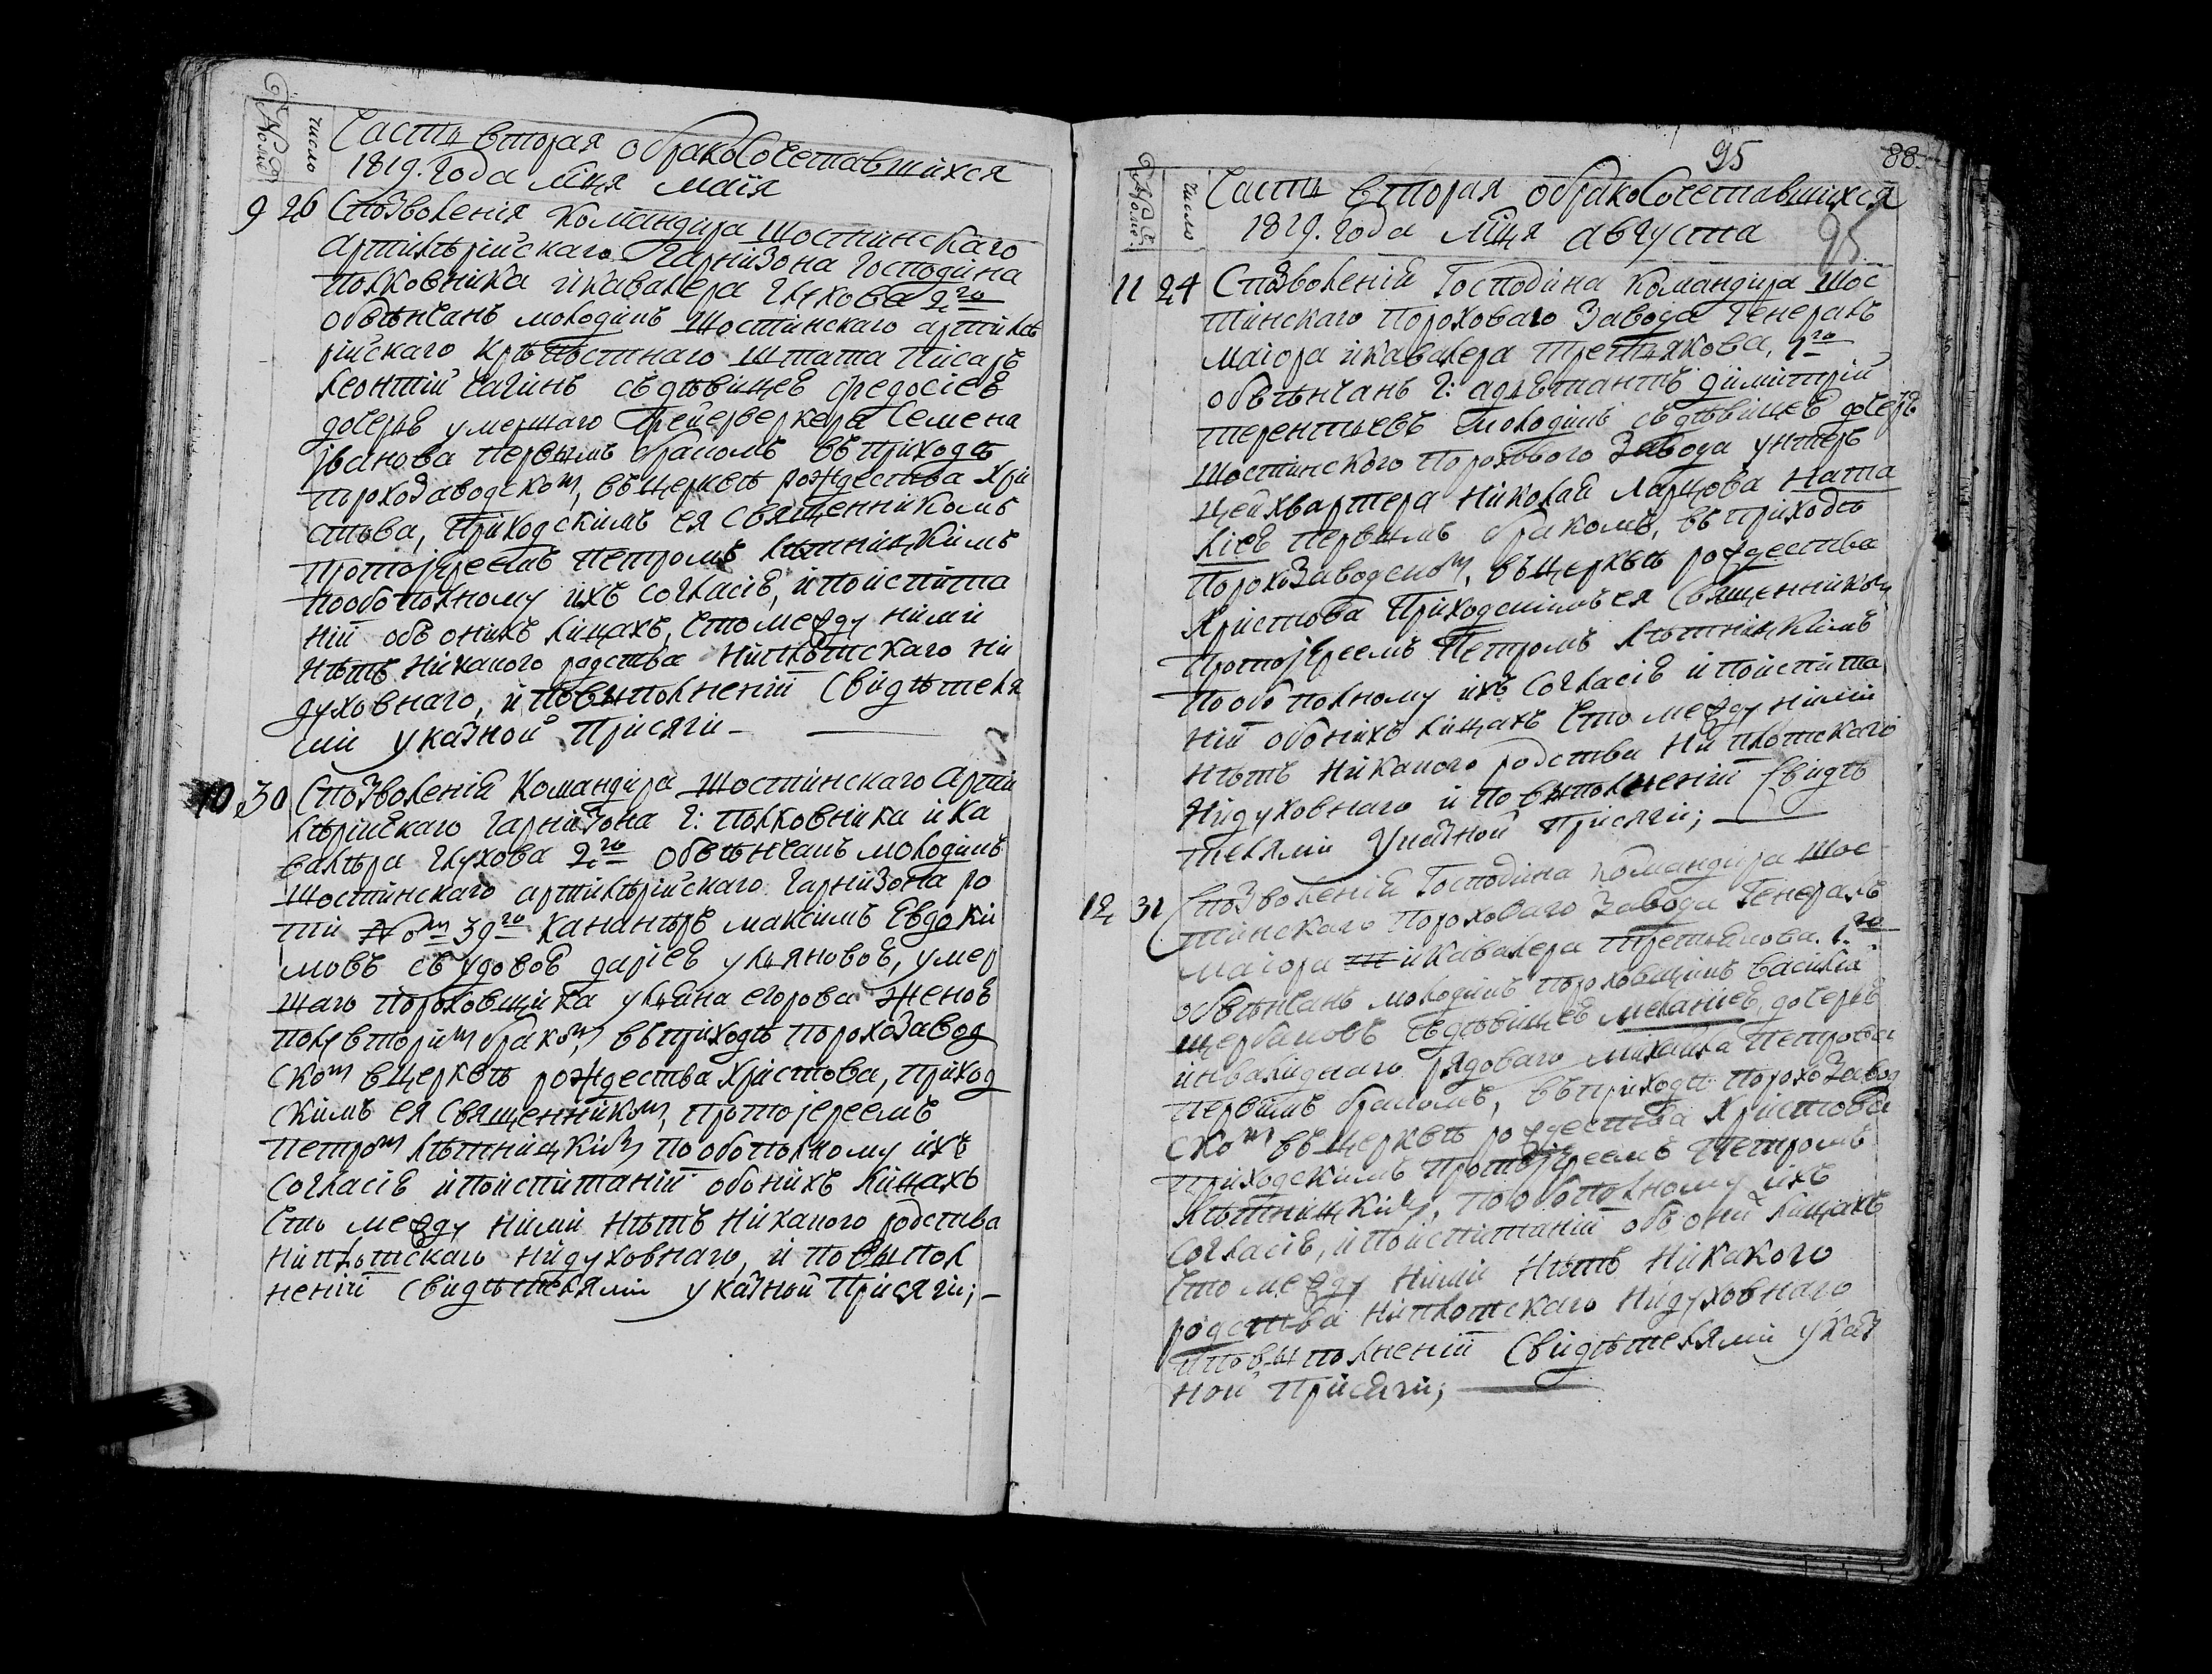 число
Часть вторая о бракосочетавшихся
1819. Года мця маія
9 26 Спозволенія командира Шостинскаго
артилѣрійскаго Гарнизона Господина
полковника икавалера Глухова 2го
обвѣнчанъ молодикъ Шостинскаго артилѣ
рійскаго крѣпостнаго штата писарь
Леонтій сдѣвицею Федосіею
дочерью умершаго Фейерверкера Семена
Иванова первымъ бракомъ въ приходѣ
порохозаводскомъ, въ церквѣ рождества Хри
стова, приходскимъ ея священникомъ
протоіереемъ петромъ Лѣтницкимъ
пообополному ихъ согласію, ипоиспита
ніи объ онихъ лицахъ, что между ними
нѣтъ никакого родства ниплотскаго ни
духовнаго, и повыполненіи свидѣтеля
ми указной присяги –
10 30 Спозволеній командира Шостинскаго арти
лѣрійскаго гарнизона г: полковника ика
валѣра Глухова 2го обвѣнчанъ молодикъ
Шостинскаго артилѣрійскаго гарнизона ро
ти №м 39го кананѣръ максимъ Евдоки
мовъ съ удовою даріею ульяновою, умер
шаго пороховщика ульяна егорова женою
полувторимъ бракомъ, въ приходѣ порохозавод
скомъ вцерквѣ рождества христова, приход
скимъ ея священникомъ, протоіереемъ
петромъ Лѣтницкимъ пообополному ихъ
согласію ипоиспитаніи обонихъ лицахъ
что между ними нѣтъ никакого родства
ниплотскаго нидуховнаго, и повыпол
неніи свидѣтелями указной присяги; –
95 88
число
Часть вторая о бракосочетавшихся
1819. года мця августа 95
11 24 Спозволеній Господина командира Шос
тинскаго пороховаго завода Генералъ
маіора икавалера Третьякова, 1го
обвѣнчанъ г: адъютантъ димитрій
терентьевъ молодикъ съдѣвицею дочерью
Шостинского порохового завода унтеръ
цейхвартера николая Ната
ліею первымъ бракомъ, въ приходѣ
порохозаводскомъ, въцерквѣ рождества
христова приходскимъ ея священникомъ
протоіереемъ Петромъ Лѣтницкимъ
пообополному ихъ согласію и поиспита
ніи обонихъ лицахъ что между ними
нѣтъ никакого родства ни плотскаго
нидуховнаго и повыполненіи свидѣ
телями указной присяги; –
12 31 Спозволеній Господина командира Шос
тинскаго пороховаго завода Генералъ
маіора икавалера Третьякова. 1го
обвѣнчанъ молодикъ пороховщикъ василій
щербаковъ съдѣвицею меланіею, дочерью
инвалиднаго рядоваго михаила петрова
первымъ бракомъ, въприходѣ порохозавод
скомъ въ церквѣ рождества христова
приходскимъ протоіереемъ петромъ
Лѣтницкимъ, пообополному ихъ
согласію, ипоиспитаніи объ они лицахъ
что между ними нѣтъ никакого
родства ниплотскаго нидуховнаго
иповыполненіи свидѣтелями указ
ной присяги; –